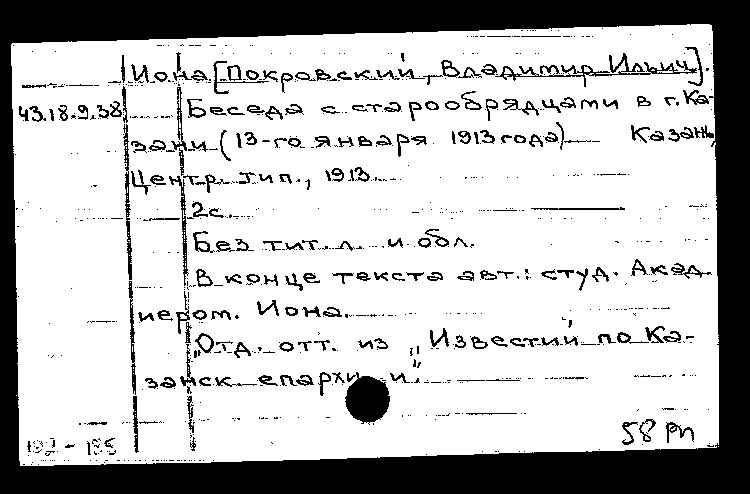 Иона [Покровский, Владимир Ильич].
43.18.9.38 Беседа с старообрядцами в г. Ка-
зани (13-го января 1913 года) Казань,
Центр. тип., 1913.
2с.
Без тит. л. и обл.
В конце текста авт.: студ. Акад.
иером. Иона.
"Отд. отт. из „Известий по Ка-
занск. епархии".
192 - 195 58 рп